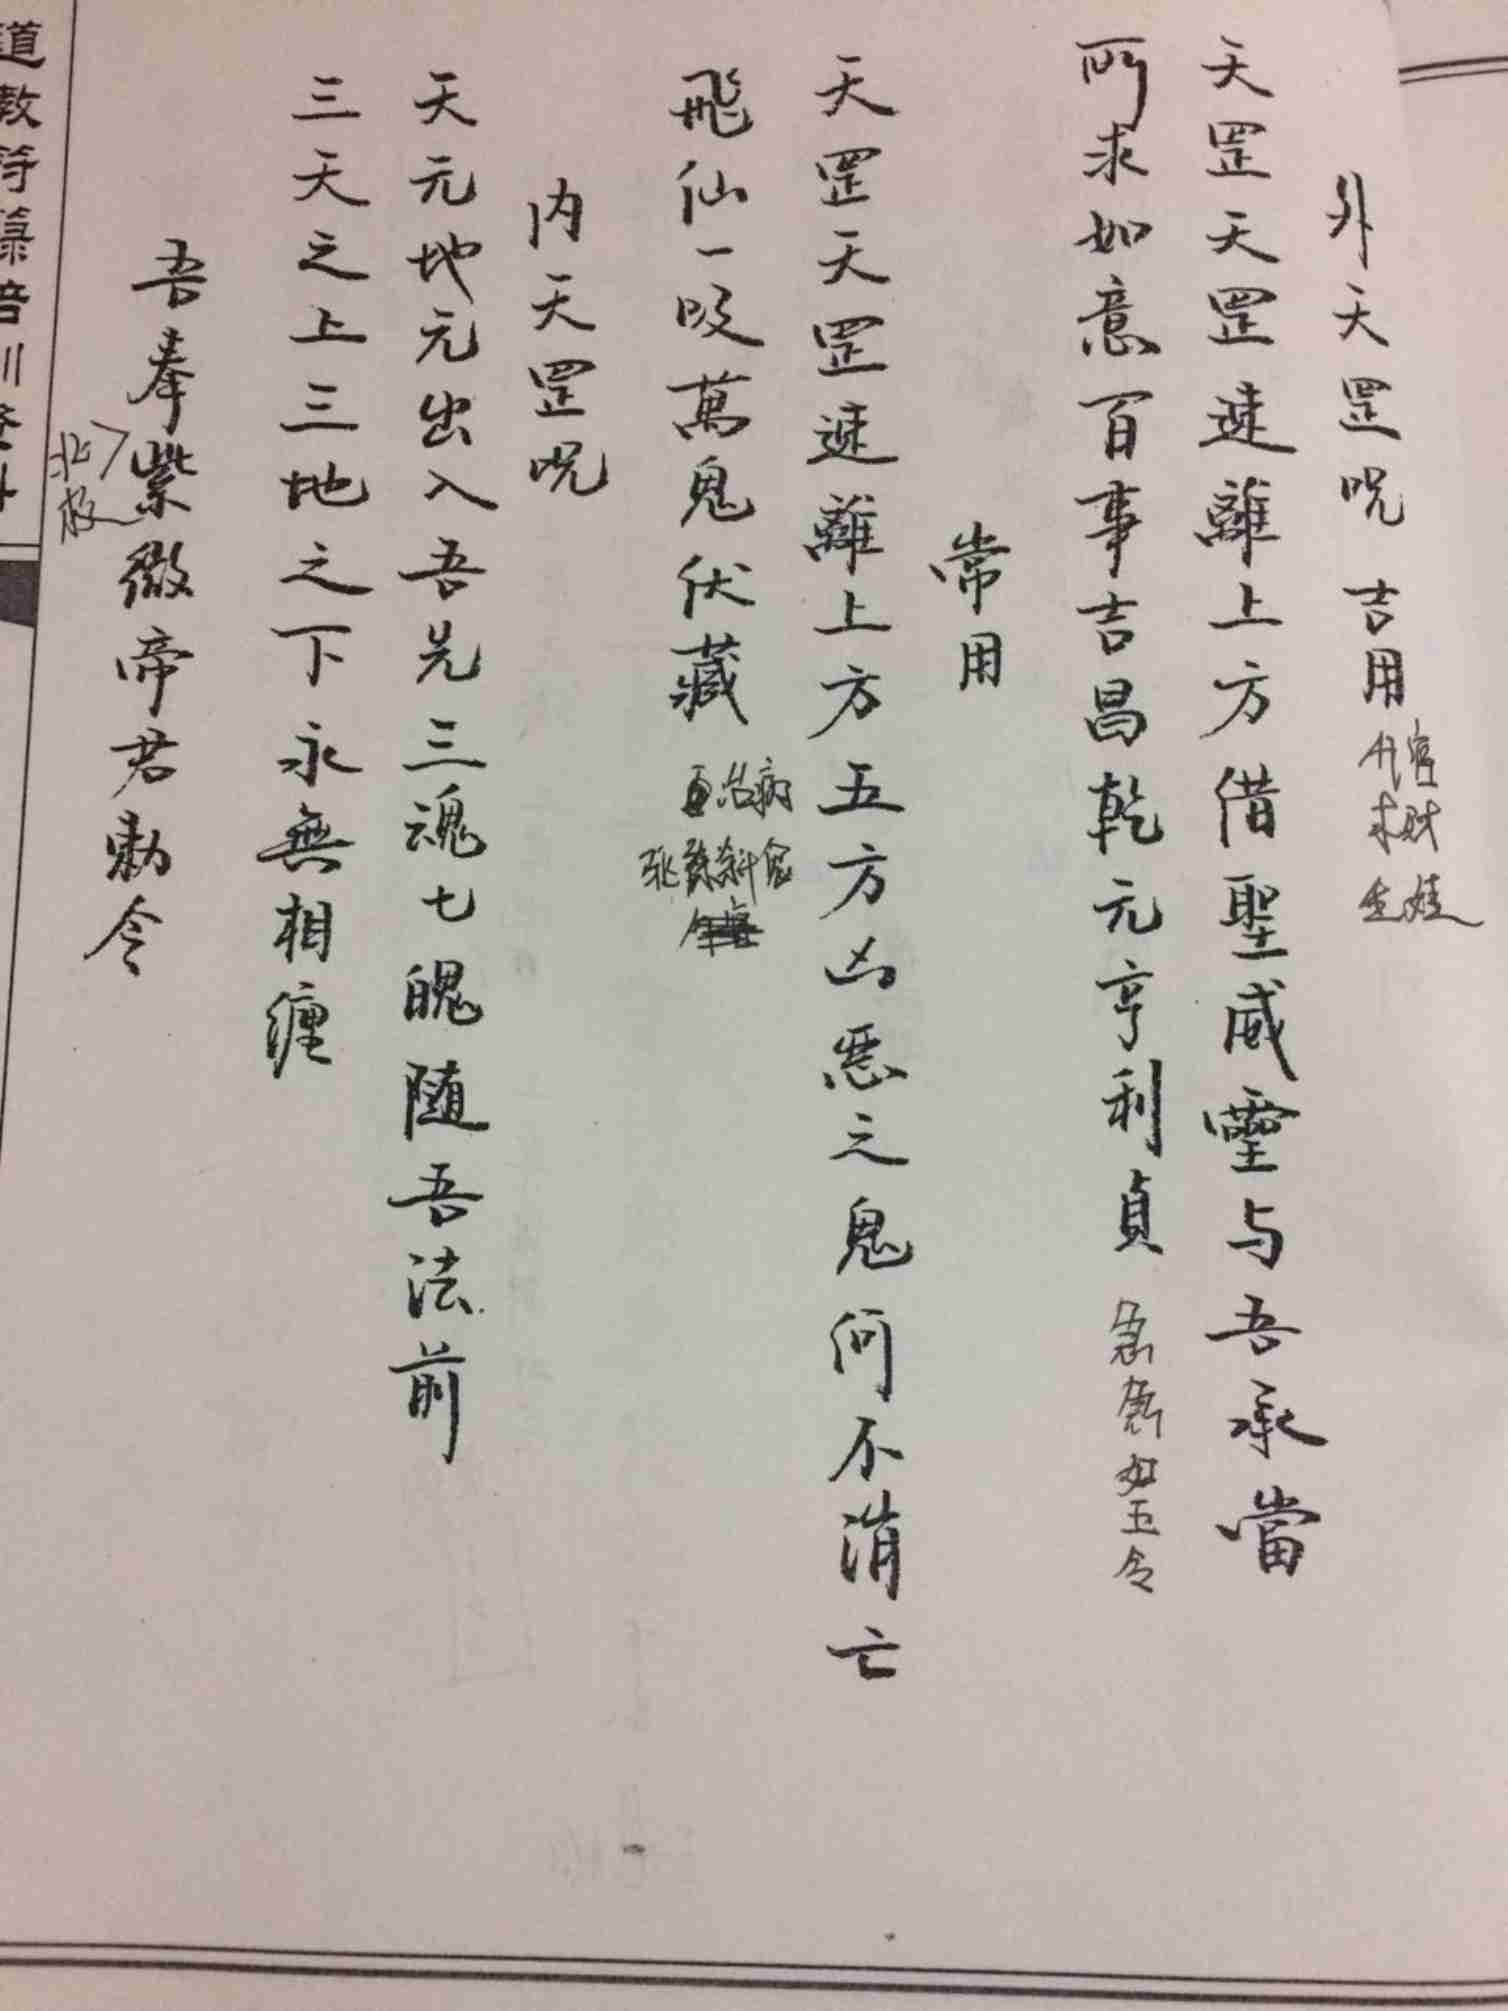 外天罡咒 吉用
升官
求财
生娃
天罡天罡速離上方借聖威霊与吾承當
所求如意百事吉昌乾元亨利貞 急急如玉令
常用
天罡天罡速離上方五方凶恶之鬼何不消亡
飛仙一吸萬鬼伏藏
治病
内天罡咒
天元地元出入吾元三魂七魄随吾法前
三天之上三地之下永無相纏
吾奉紫微帝君勅令
北极
道教符箓培训